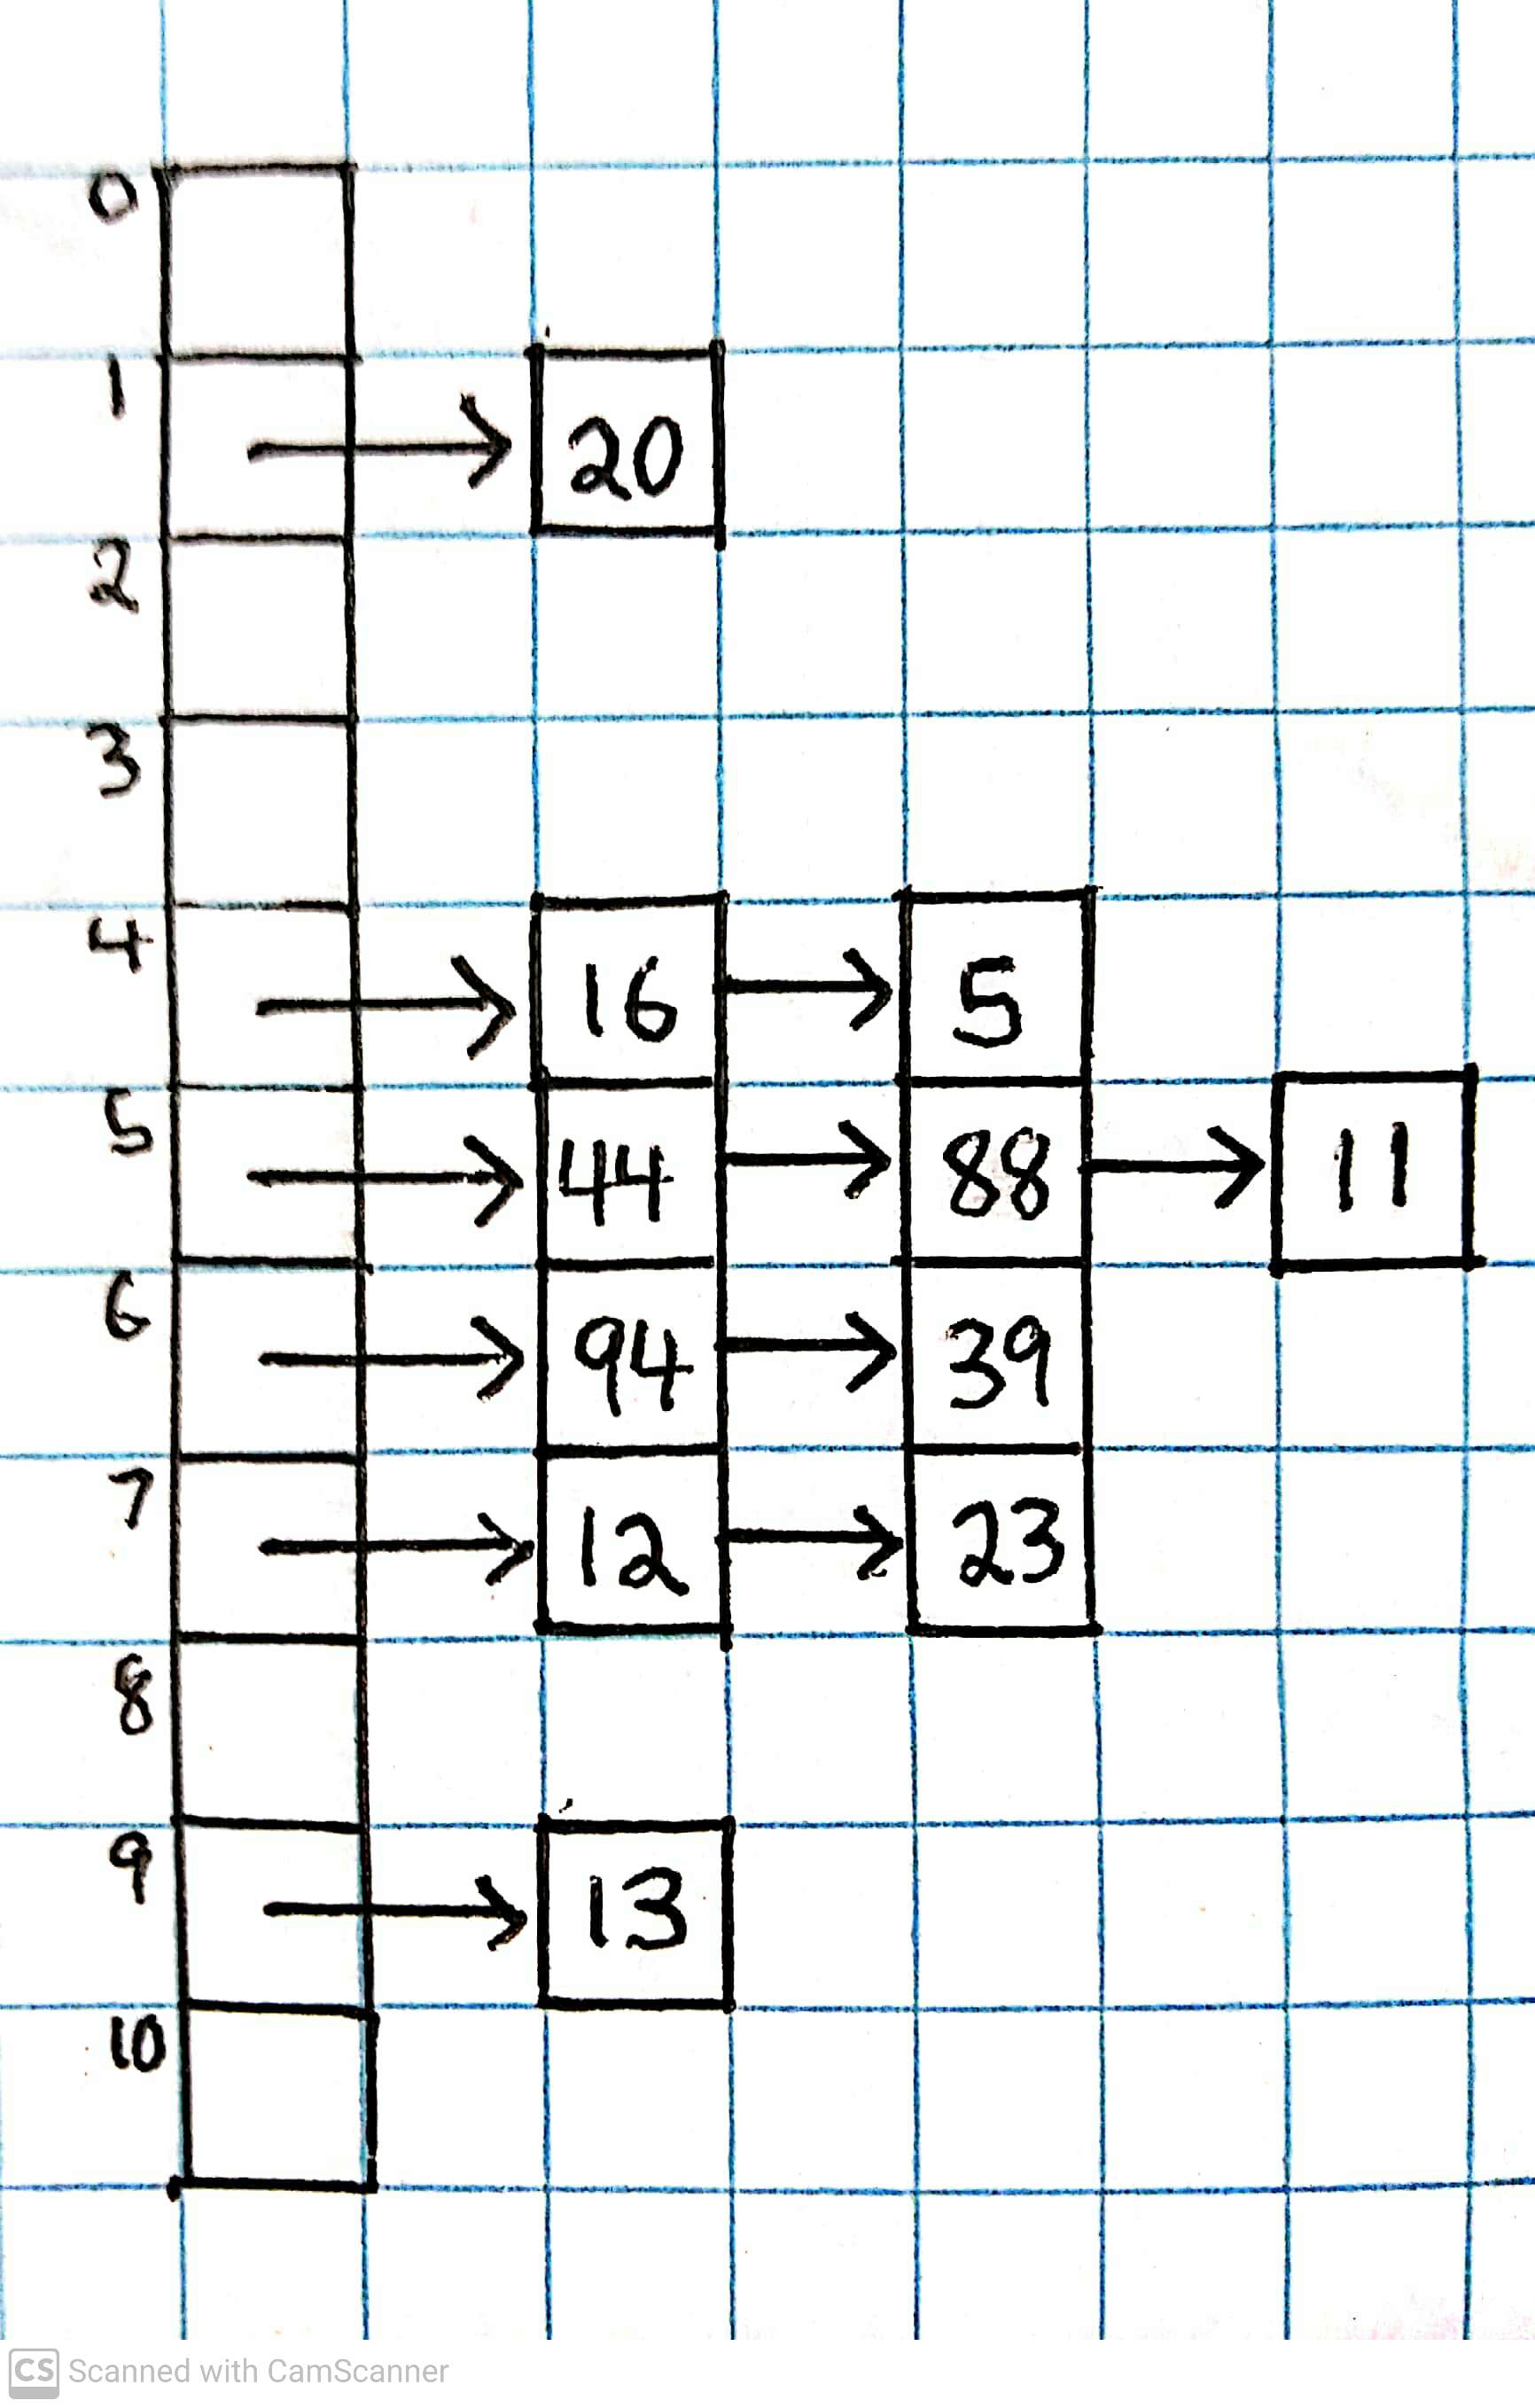 0
1
20
2
3
4
16 5
5
44 88 11
6
94 39
7
12 23
8
9
13
10
CS Scanned with CamScanner